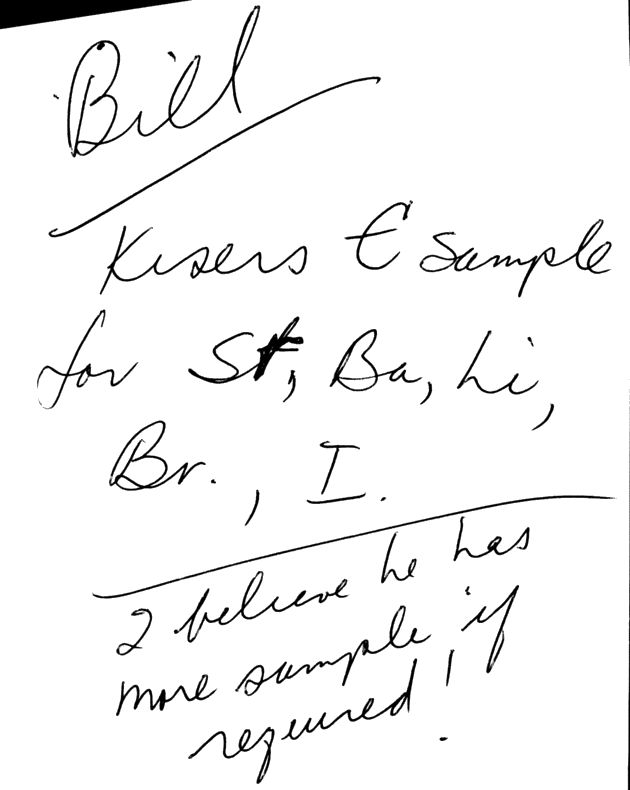 Bill
Kisers € Sample
for St, Ba, Li,
Br., I.
I believe he has
more sample if
required!